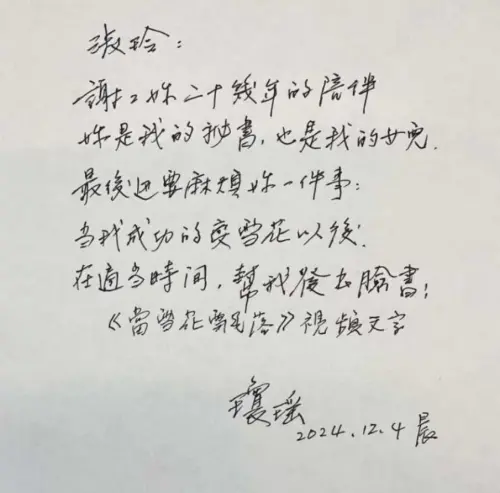 淑玲：
謝々妳二十幾年的陪伴
妳是我的秘書，也是我的女兒.
最後还要麻煩妳一件事：
当我成功的變雪花以後.
在適当時間，幫我發出臉書：
《當雪花飄落》視頻文字
瓊瑤
2024.12.4 晨